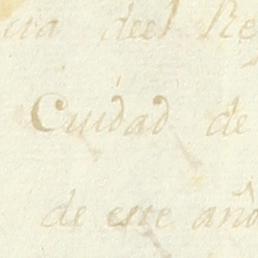 era deel Re
Cuidad de
de este año